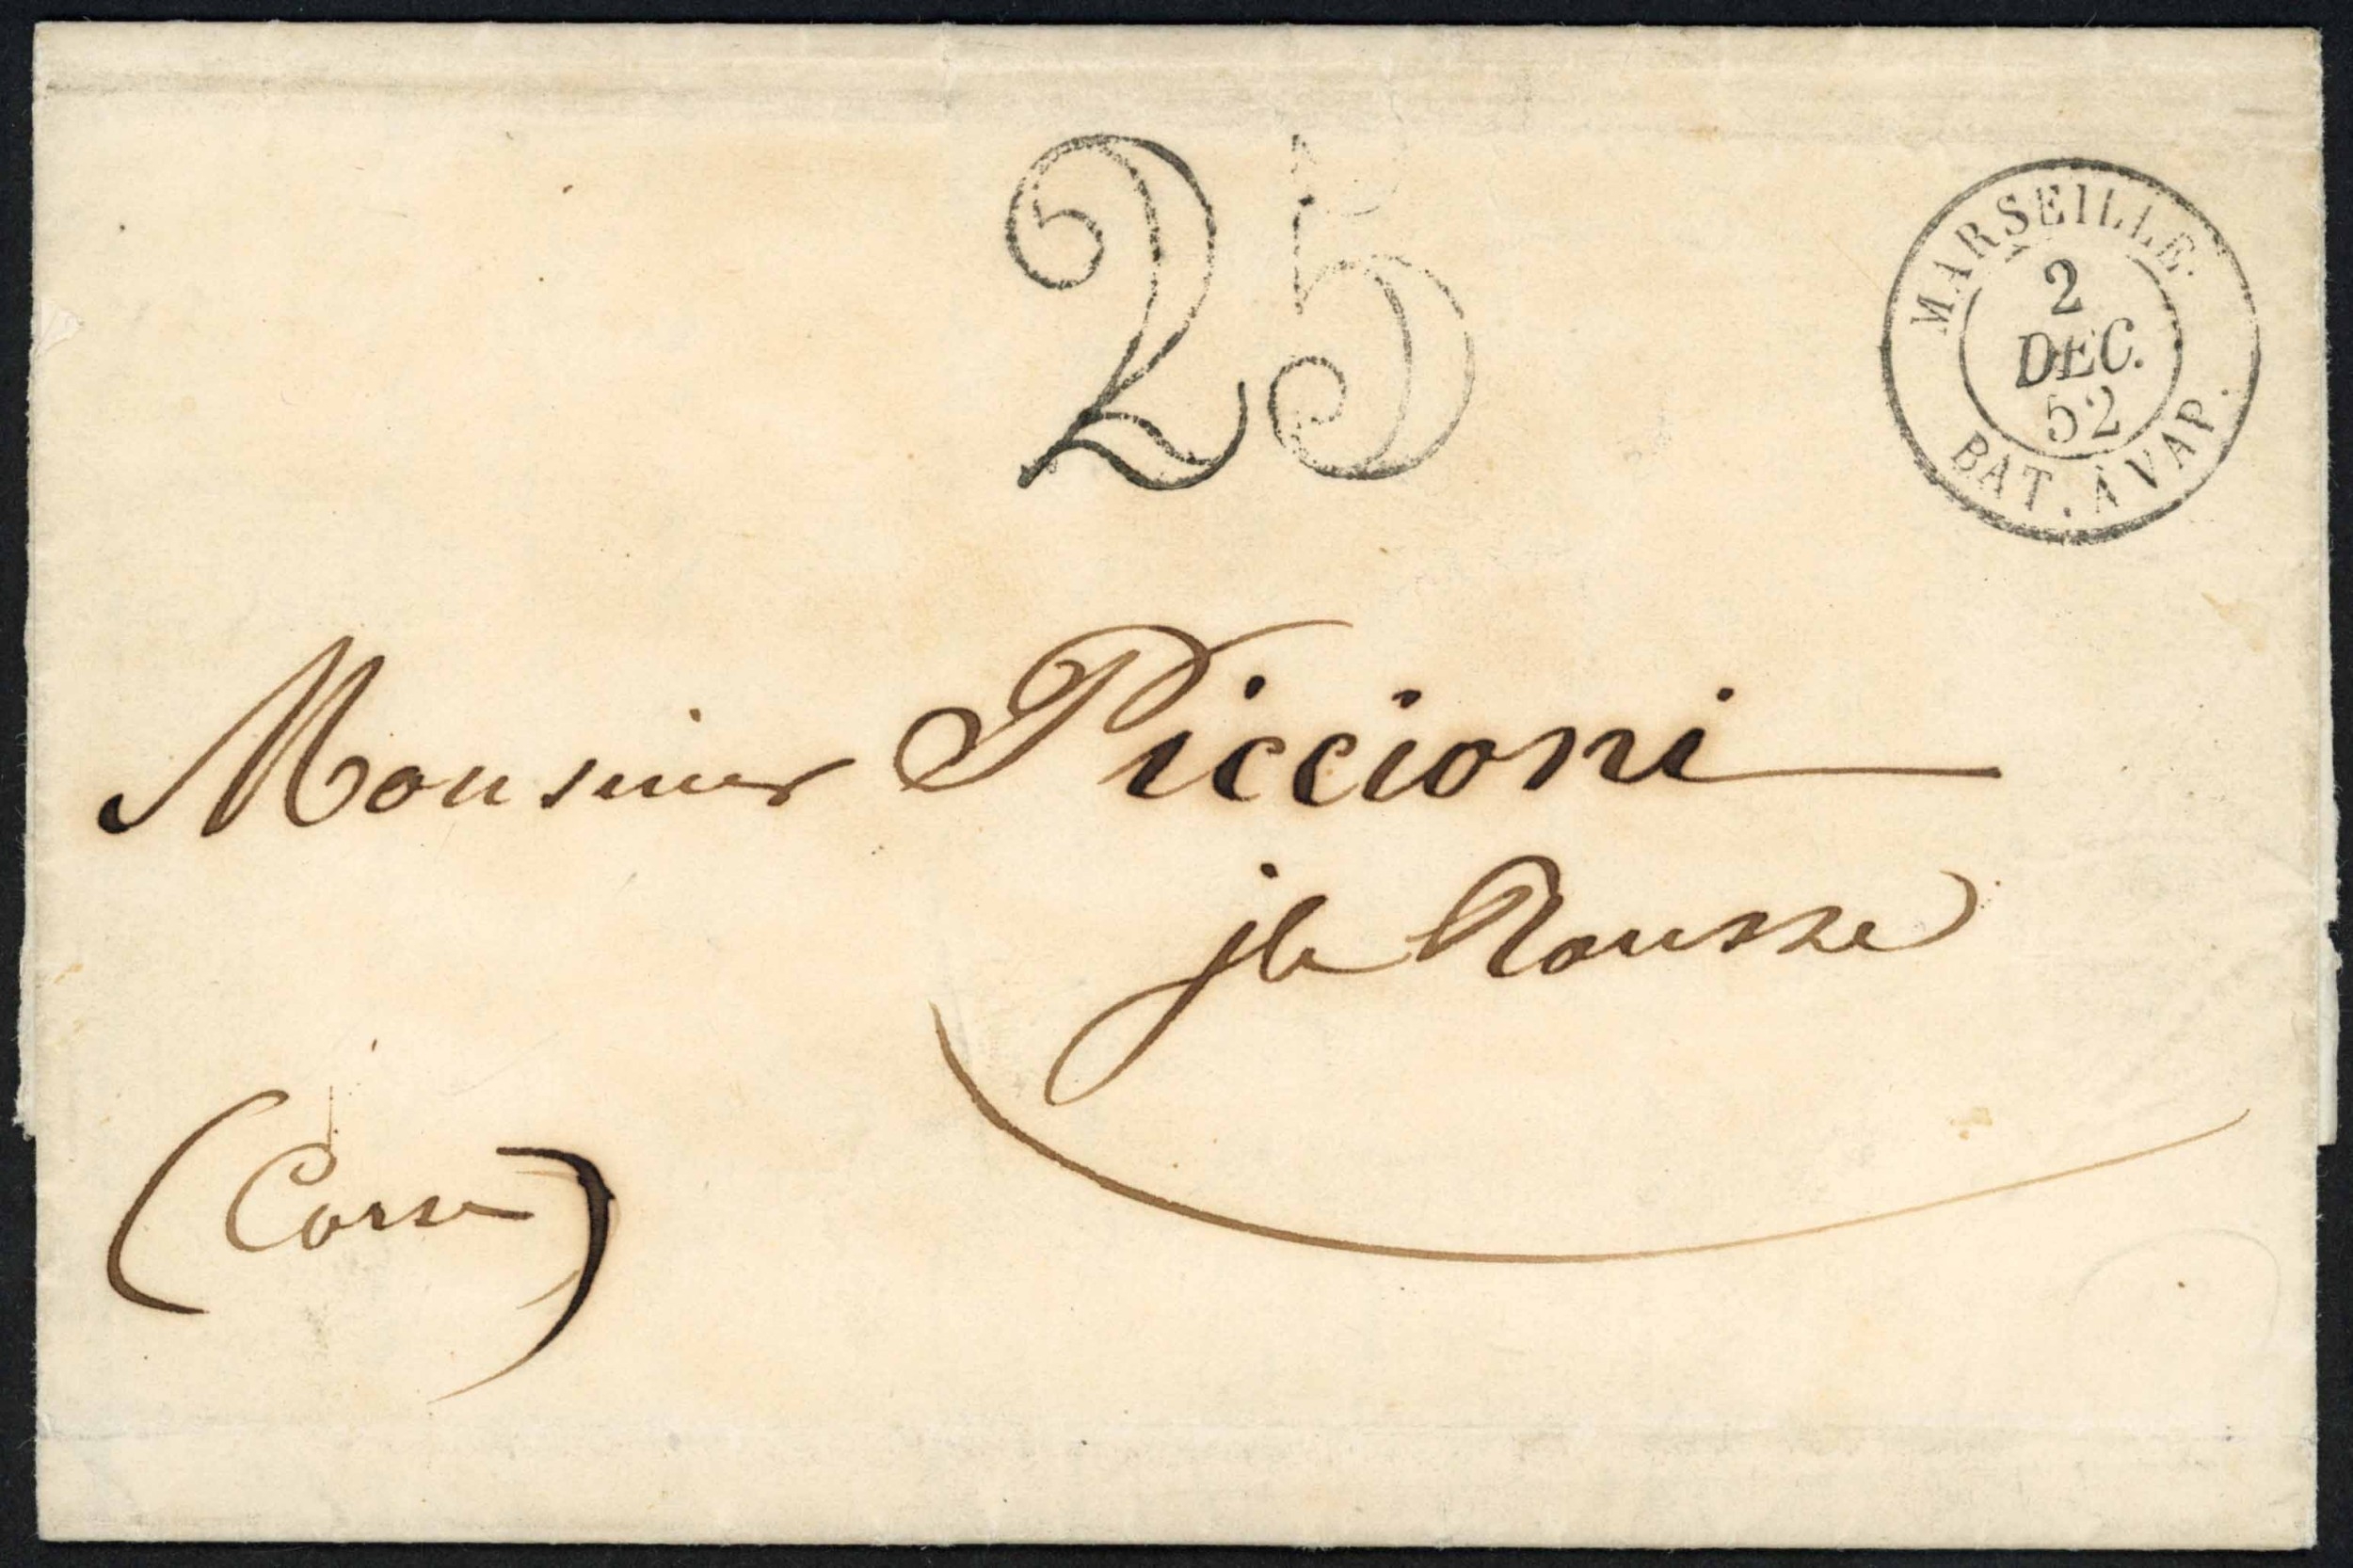 25
MARSEILLE.
2
DEC.
52
BAT. À VAP.
Monsieur Piccioni
jle Rousse
(Corse)